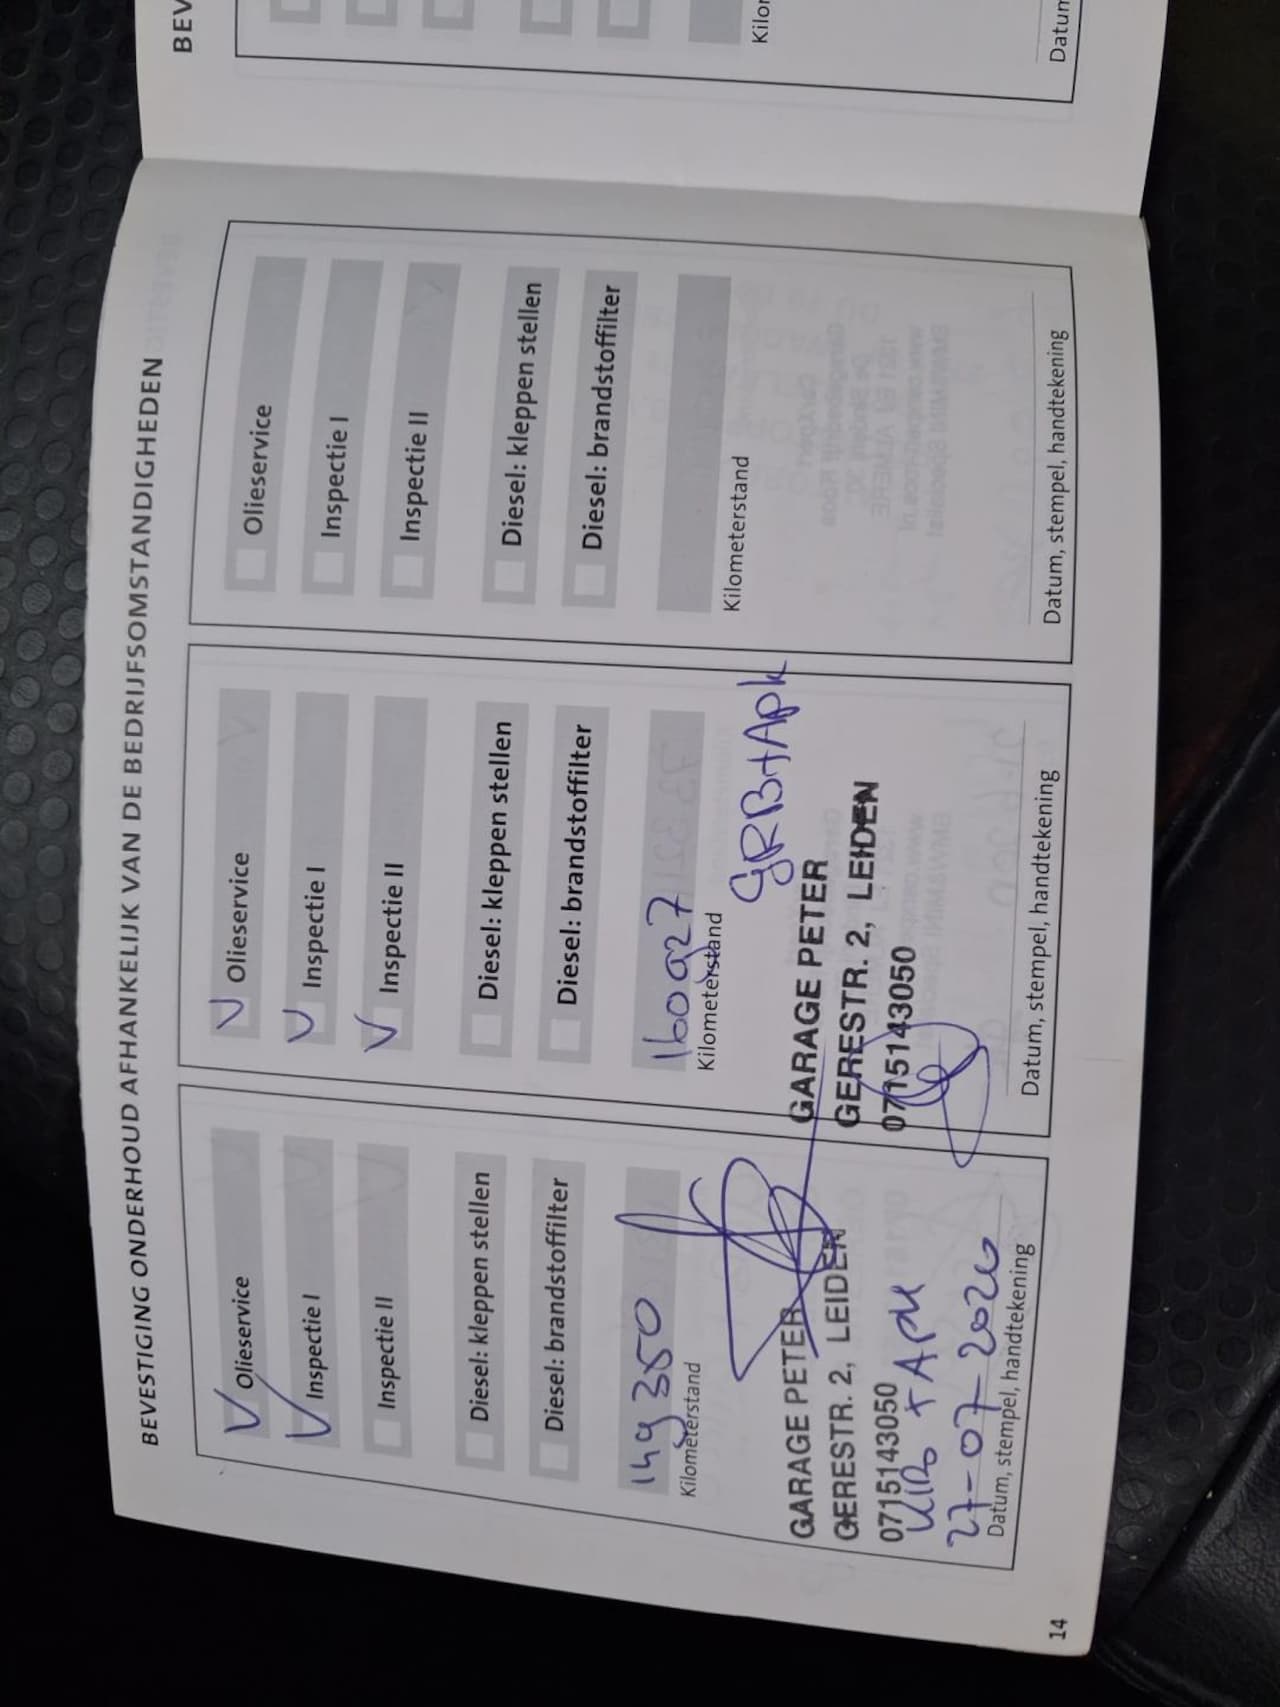 BEV
Kilo
Datum
BEVESTIGING ONDERHOUD AFHANKELIJK VAN DE BEDRIJFSOMSTANDIGHEDEN
Olieservice
Inspectie I
Inspectie II
Diesel: kleppen stellen
Diesel: brandstoffilter
149350
Kilometerstand
GARAGE PETER
GERESTR. 2, LEIDEN
0715143050
+ APK
27-07-2020
Datum, stempel, handtekening
Olieservice
Inspectie I
Inspectie II
Diesel: kleppen stellen
Diesel: brandstoffilter
160927
Kilometerstand
GRB+Apk
GARAGE PETER
GERESTR. 2, LEIDEN
0715143050
Datum, stempel, handtekening
Olieservice
Inspectie I
Inspectie II
Diesel: kleppen stellen
Diesel: brandstoffilter
Kilometerstand
Datum, stempel, handtekening
14